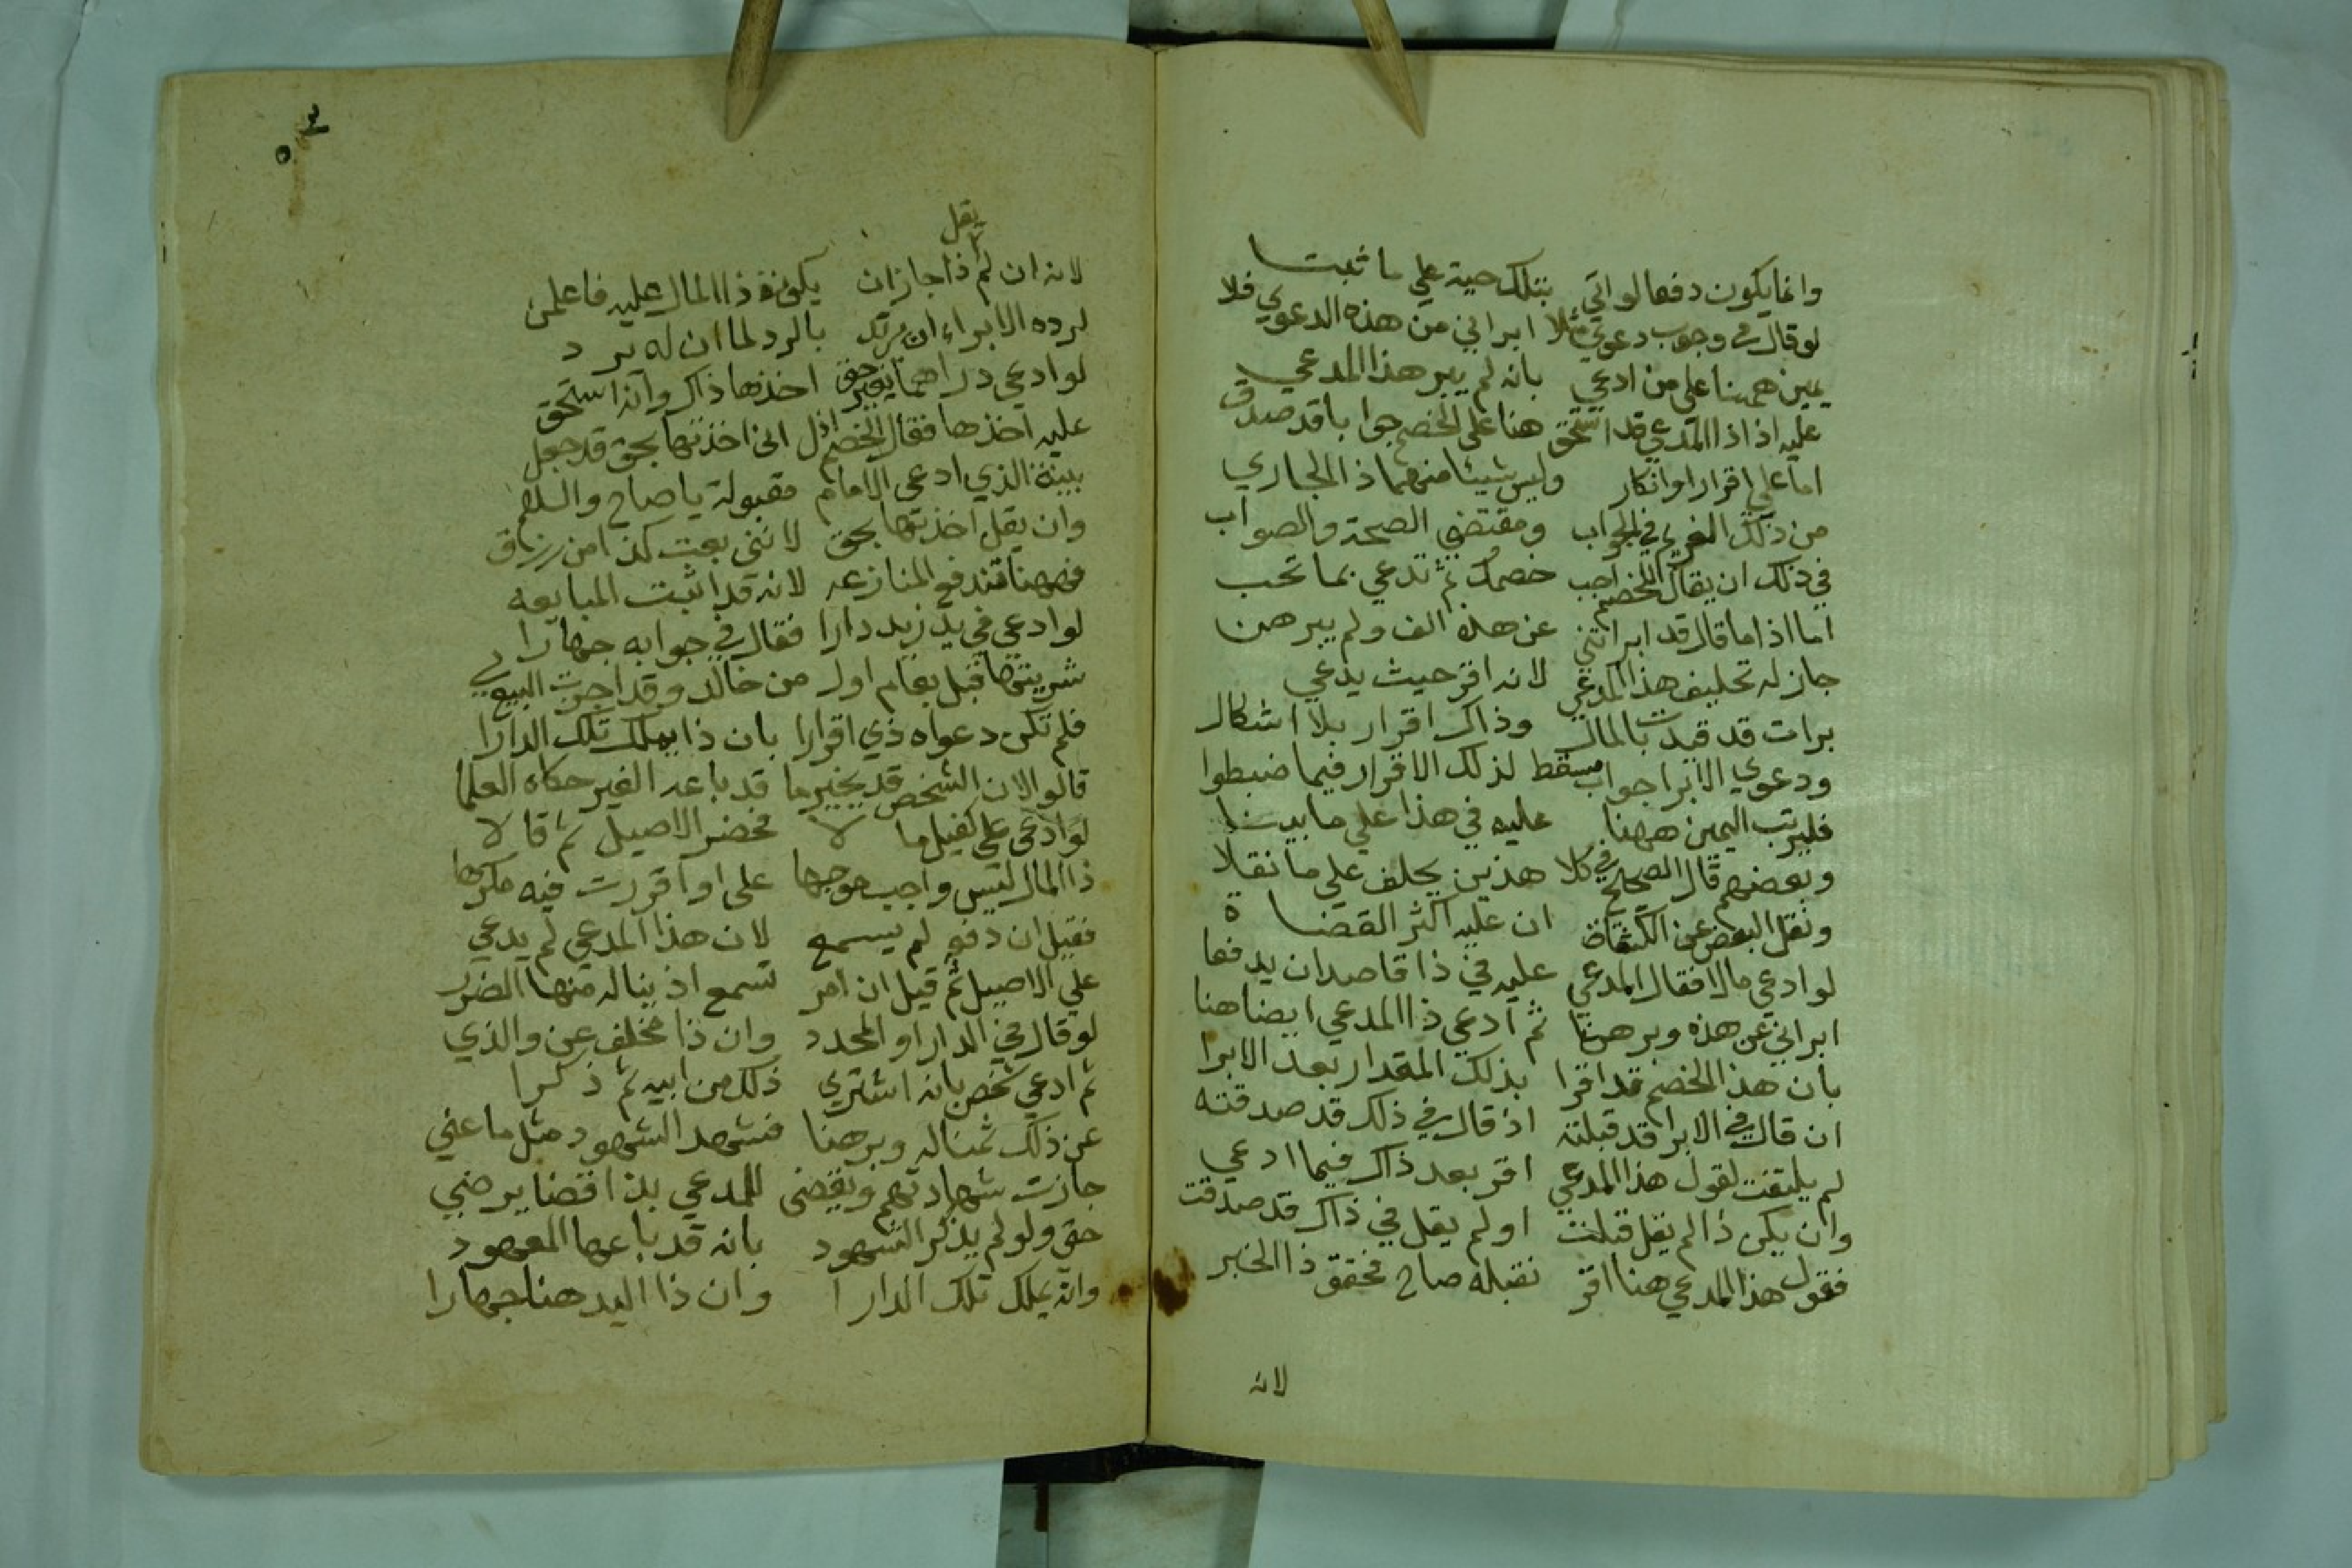 وانما يكون دفعا لو اتي بتلك حية علي ما ثبتا
لو قال في وجوب دعوي مثلا ابراني من هذه الدعوي فلا
يمين ههنا علي من ادعي بانه لم يبر هذا المدعي
عليه اذ ذا المدعي قد استحق هنا على الخصم جوابا قد صدق
اما علي اقرار او انكار وليس شيئا منهما ذا الجاري
من ذلك الغريم في الجواب ومقتضي الصحة والصواب
في ذلك ان يقال للخصم اجب خصمك ثم تدعي بما تحب
اما اذا ما قال قد ابراتني عن هذه الف ولم يبرهن
جاز له تحليف هذا المدعي لانه اقر حيث يدعي
برات قد قيدت بالمال وذاك اقرار بلا اشكال
ودعوي الابرا جواب مسقط لذلك الاقرار فيما ضبطوا
فليرتب اليمين ههنا عليه في هذا علي ما بينا
وبعضهم قال الصحيح في كلا هذين يحلف علي ما نقلا
ونقل البعض عن الثقاة ان عليه اكثر القضاة
لو ادعي مالا فقال المدعي عليه في ذا قاصدا ان يدفعا
ابراني عن هذه وبرهنا ثم ادعي ذا المدعي ايضا هنا
بان هذا الخصم قد اقرا بذلك المقدار بعد الابرا
ان قال في الابرا قد قبلته اذ قال في ذلك قد صدقته
لم يلتفت لقول هذا المدعي اقر بعد ذاك فيما ادعي
وان يكن ذا لم يقل قبلت او لم يقل في ذاك قد صدقت
فقول هذا المدعي هنا اقر نقبله صاح فحقق ذا الخبر
لانه
يقل
لانه ان لم ذا جاز ان يكون ذا المال عليه فاعلمن
لرده الابراء ان يرتد بالرد لما ان له يرد
لو ادعي دراهما بغير حق اخذها ذاك وانه استحق
عليه اخذها فقال الخصم اني اخذتها بحق قد جعل
بينة الذي ادعى الامام مقبولة يا صاح والسلام
وان يقل اخذتها بحق لانني بعت كذا من رزاق
فههنا تندفع المنازعه لانه قد اثبت المبايعه
لو ادعي في يد زيد دارا فقال في جوابه جهارا
شريتها قبل بعام اول من خالد وقد اجزت البيع لي
فلم تكن دعواه ذي اقرارا بان ذا يملك تلك الدارا
قالوا لان الشخص قد يجيز ما قد باعه الغير حكاه العلما
لو ادعي علي كفيل ما لا فحضر الاصيل ثم قا لا
ذا المال ليس واجب موجها على او اقررت فيه مكرها
فقيل ان دفع لم يسمع لان هذا المدعي لم يدعي
علي الاصيل ثم قيل ان امر تسمع اذ يناله منها الضرر
لو قال في الدار او المحدد وان ذا مخلف عن والدي
ثم ادعي شخص بانه اشتري ذلك من ابيه ثم ذكرا
عن ذلك ثمنا له وبرهنا فشهد الشهود مثل ما عني
جازت شهادتهم ويقضى للمدعي بذا قضا يرضي
حتي ولو لم يذكر الشهود بانه قد باعها المعهود
وانه يملك تلك الدارا وان ذا اليد هنا جهارا